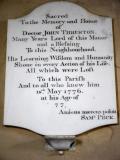 Sacred
To the Memory and Honor
of
Doctor JOHN
Many Years Lord of this Manor
and a Blessing
To this Neighbourhood.
His Learning Wisdom and Humanity
Shone in every Action of his Life.
All which were Lost
To this Parish
and To all who knew him
May 1776.
at his Age of
77.
SAM